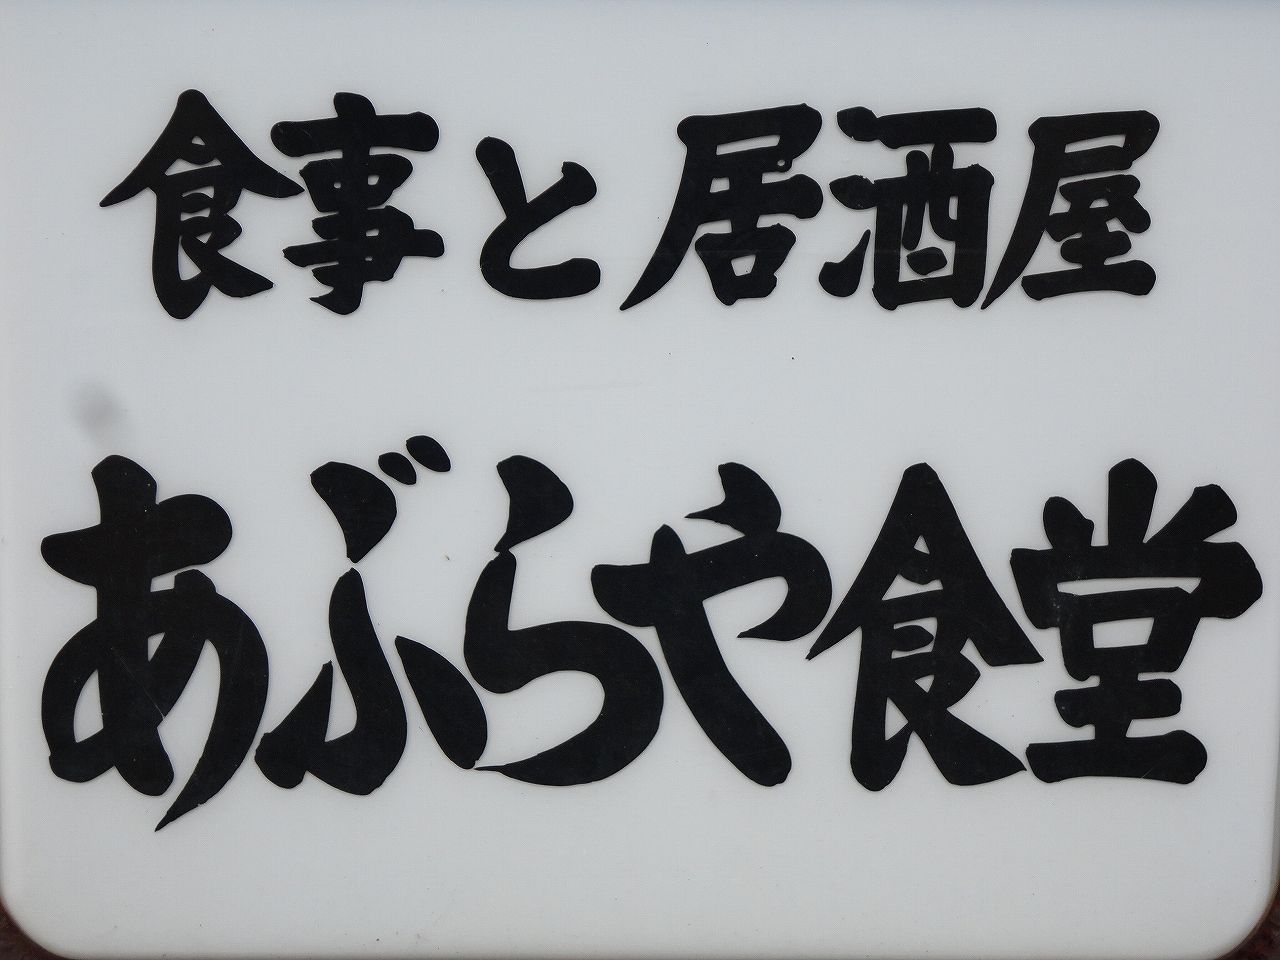 食事と居酒屋
あぶらや食堂